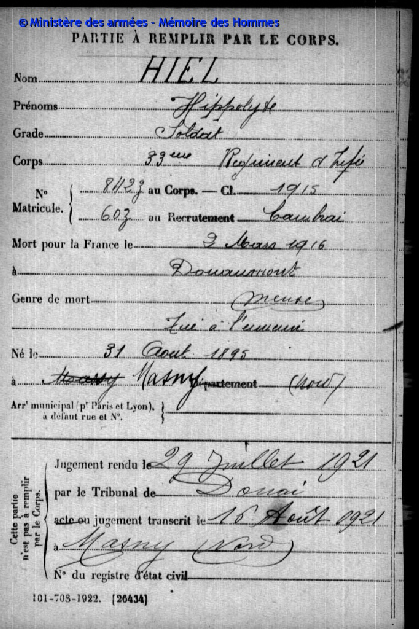 © Ministère des armées - Mémoire des Hommes
PARTIE À REMPLIR PAR LE CORPS.
Nom HIEL
Prénoms Hippolyte
Grade Soldat
Corps 33me Régiment d'Infie
N° Matricule. 8423 au Corps. — Cl. 1915
603 au Recrutement Cambrai
Mort pour la France le 2 Mars 1916
à Douaumont
Genre de mort (Meuse)
Tué à l'ennemi
Né le 31 Août 1895
à Massy Masny Département (Nord)
Arrt municipal (pr Paris et Lyon),
à défaut rue et N°.
Cette partie n'est pas à remplir par le Corps.
Jugement rendu le 29 Juillet 1921
par le Tribunal de Douai
acte ou jugement transcrit le 16 Août 1921
à Masny (Nord)
N° du registre d'état civil
101-708-1922. [26434]